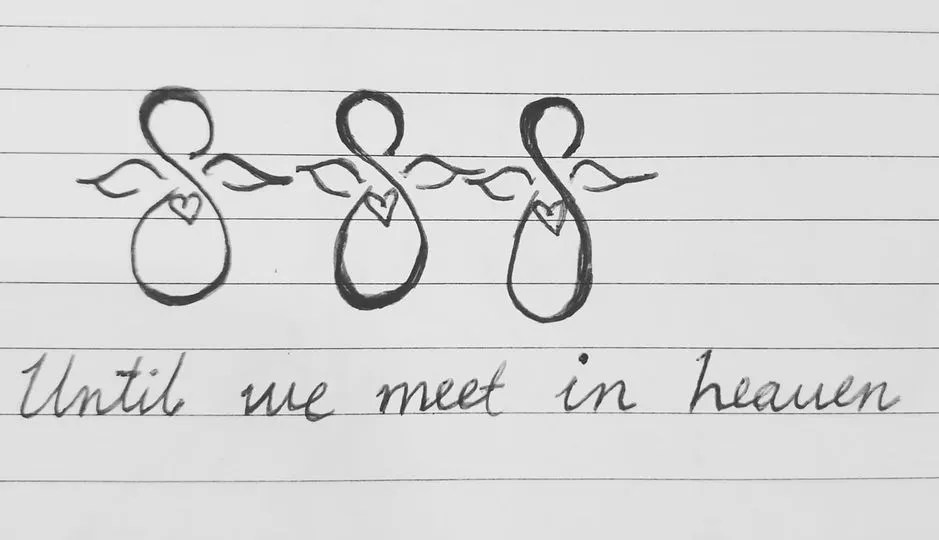 Until we meet in heaven